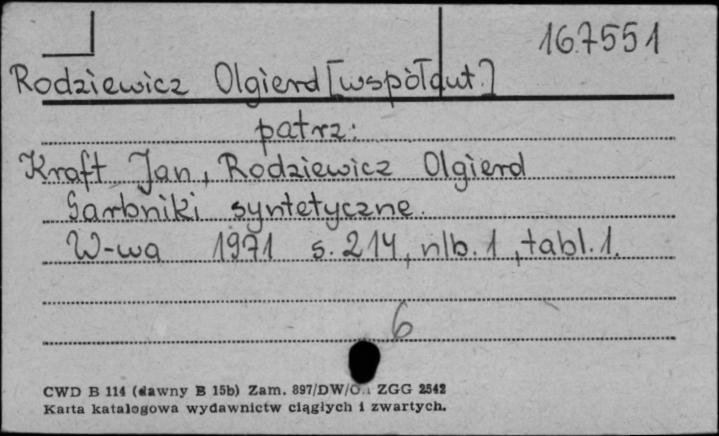 167551
Rodziewicz Olgierd [współaut.]
patrz:
Kraft Jan, Rodziewicz Olgierd
Garbniki syntetyczne.
W-wa 1971 s. 214, nlb. 1, tabl. 1.
6
CWD B 114 (dawny B 15b) Zam. 897/DW/ ZGG 2542
Karta katalogowa wydawnictw ciągłych i zwartych.